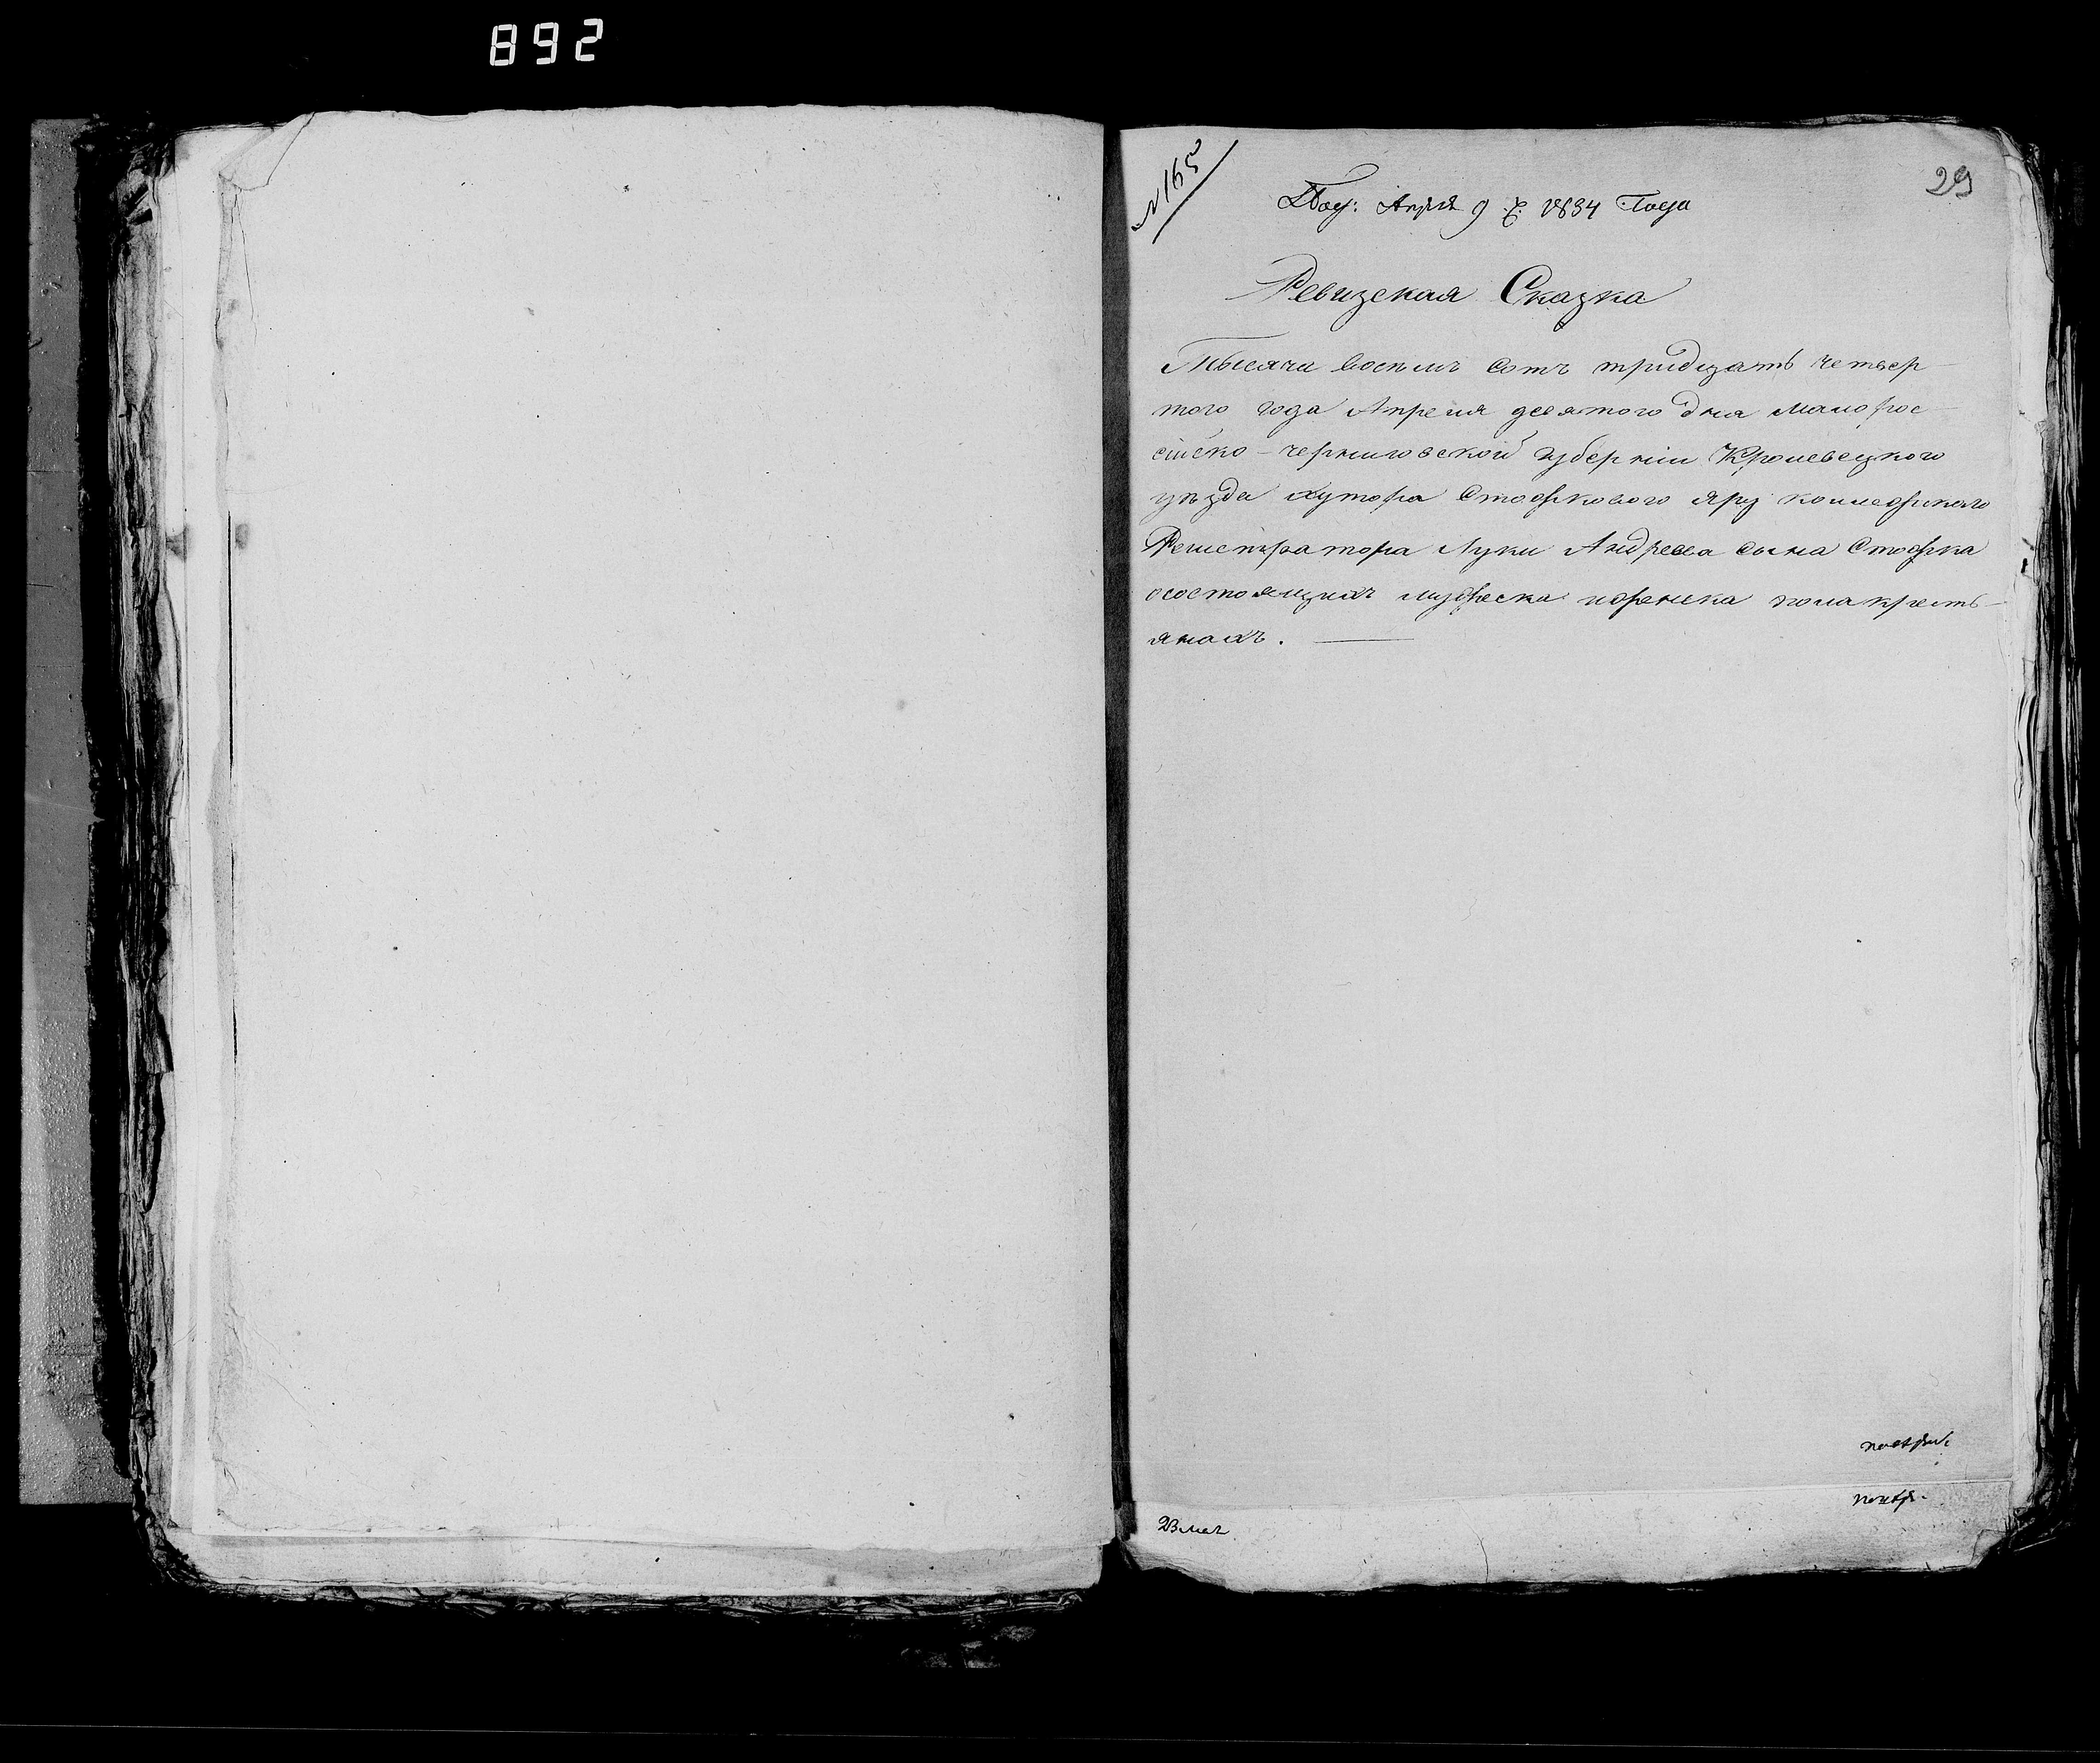 892
№ 165
29
Пол: Апреля 9 д. 1834 Года
Ревизская Сказка
Тысяча восемъ Сотъ тридцать четвер
того года Апреля девятого дня малорос
сiйско-черниговской губернiи Кролевецкого
уѣзда хутора Стожкового яру коллежскаго
Регистратора Луки Андреева Сына Стожка
осостоящихъ мужеска иженска пола кресть-
янахъ.